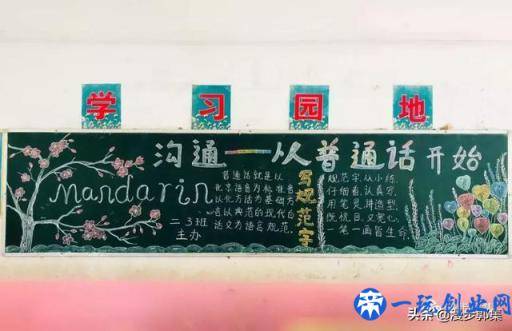 学习园地
沟通一从普通话开始
Mandarin
二.3班
主办
普通话就是以
北京语音为标准音
以北方话为基础方
言以典范的现代白
话文为语言规范.
写规范字
规范字,从小练,
仔细看,认真写,
用笔灵
悦悦目,又宽心,
一笔一画皆生命.
一坛创业网
头条